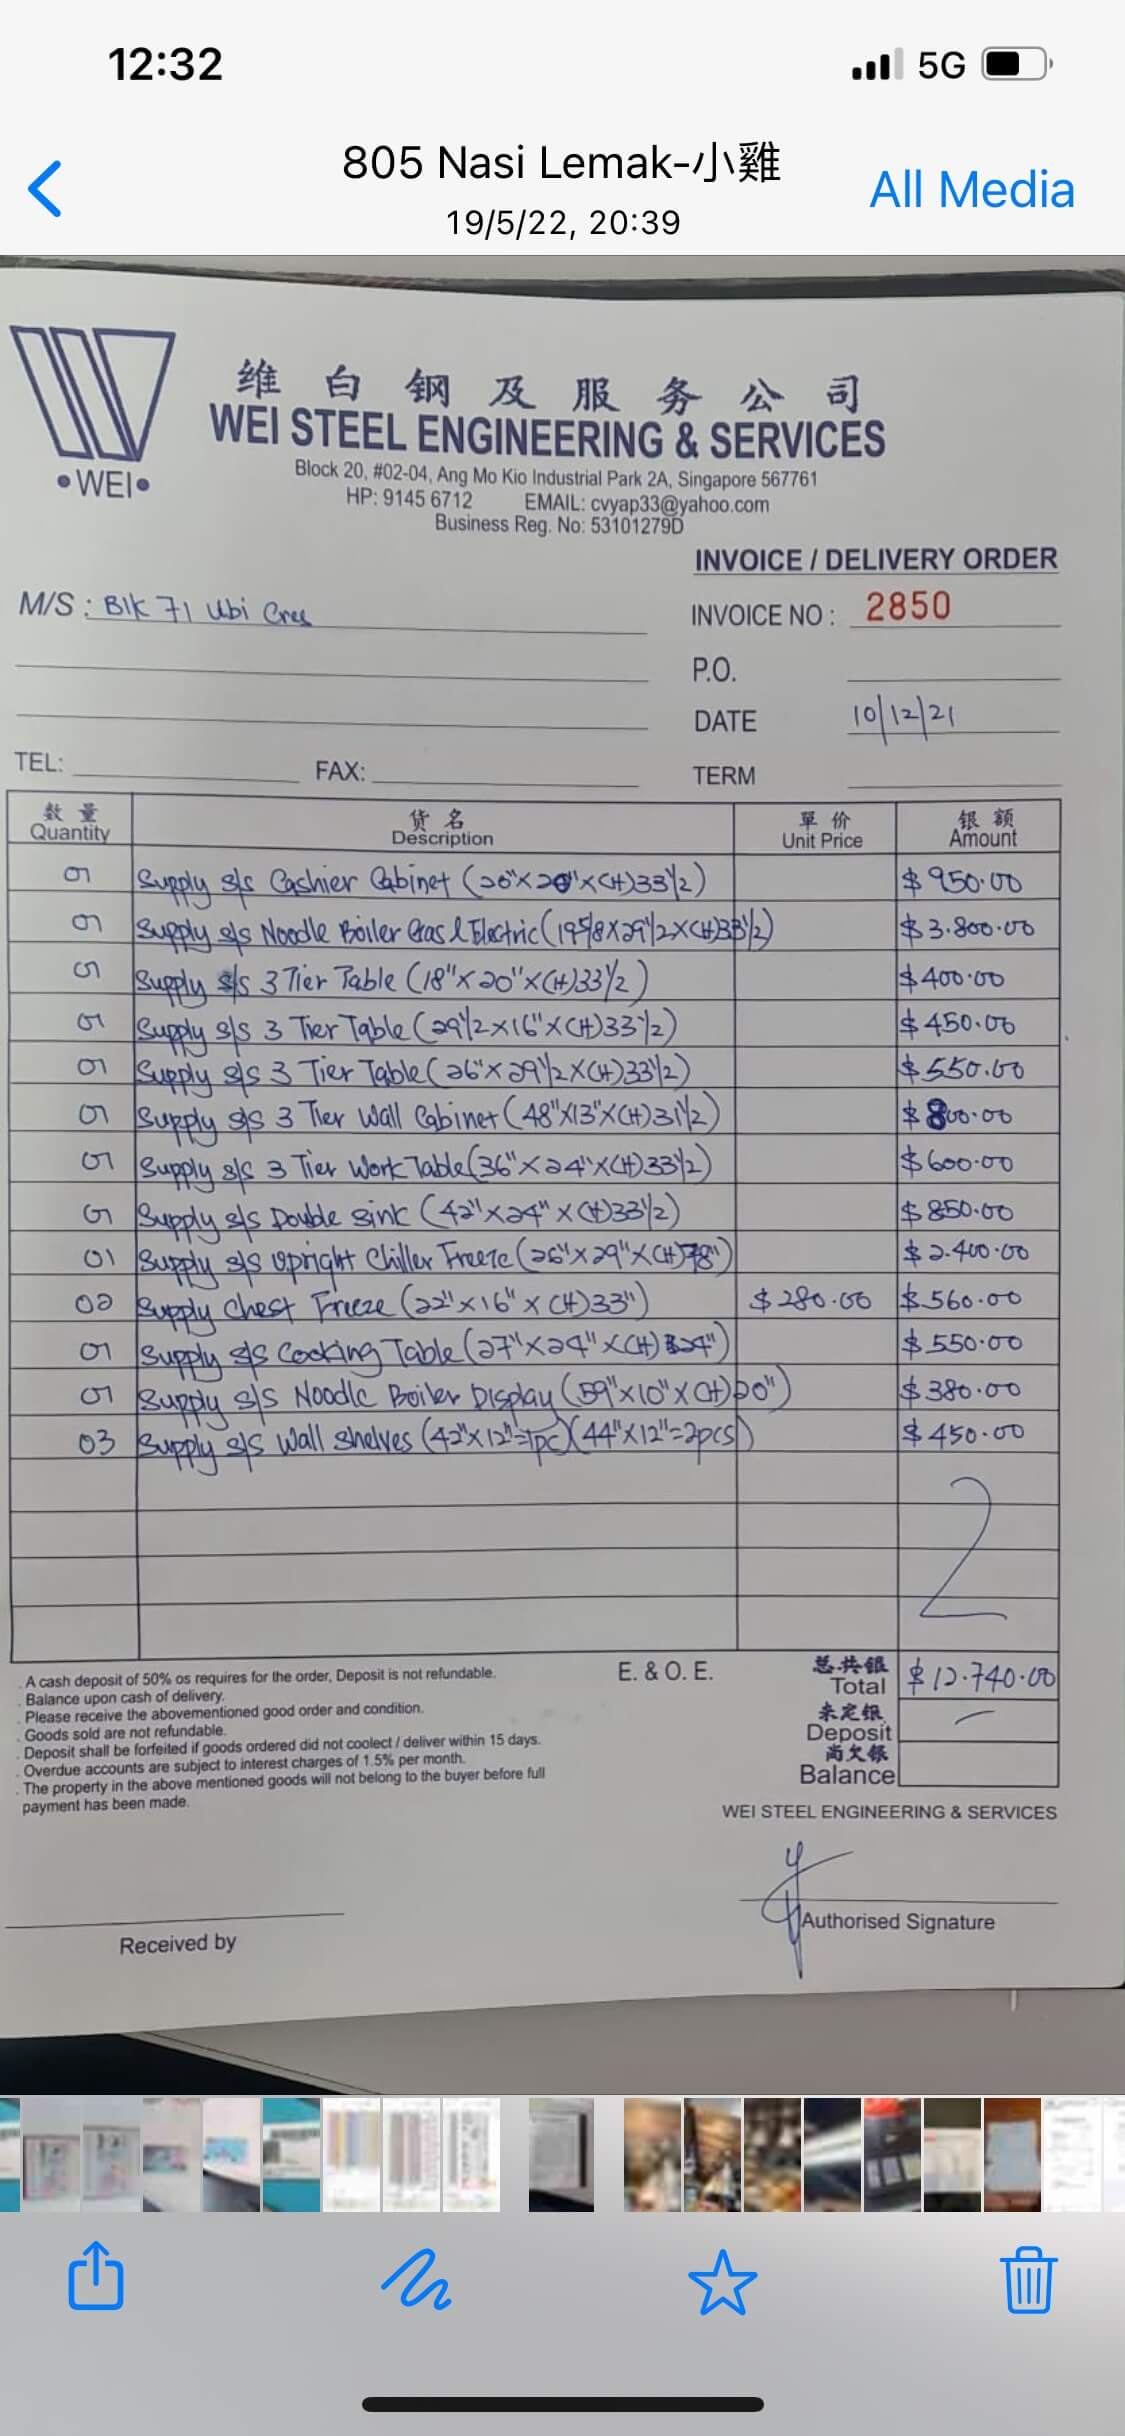 12:32
5G
805 Nasi Lemak-小雞
19/5/22, 20:39
All Media
维白钢及服务公司
WEI STEEL ENGINEERING & SERVICES
•WEI•
Block 20, #02-04, Ang Mo Kio Industrial Park 2A, Singapore 567761
HP: 9145 6712 EMAIL: cvyap33@yahoo.com
Business Reg. No: 53101279D
INVOICE / DELIVERY ORDER
M/S : Blk 71 Ubi Cres
INVOICE NO : 2850
P.O.
DATE 10/12/21
TEL: FAX: TERM
数量 货名 單价 银额
Quantity Description Unit Price Amount
01 Supply s/s Cashier Cabinet (20"X20"X(H)33½) $950.00
01 Supply s/s Noodle Boiler Gas & Electric (195/8X291/2X(H)331/2) $3.800.00
01 Supply s/s 3 Tier Table (18"X20"X(H)331/2) $400.00
01 Supply s/s 3 Tier Table (291/2X16"X(H)331/2) $450.00
01 Supply s/s 3 Tier Table (26"X291/2X(H)331/2) $550.00
01 Supply s/s 3 Tier Wall Cabinet (48"X13"X(H)311/2) $800.00
01 Supply s/s 3 Tier Work Table (36"X24"X(H)331/2) $600.00
01 Supply s/s Double Sink (42"X24"X(H)331/2) $850.00
01 Supply s/s Upright Chiller Freeze (26"X29"X(H)78") $2.400.00
02 Supply Chest Freeze (22"X16"X(H)33") $280.00 $560.00
01 Supply s/s Cooking Table (27"X24"X(H)24") $550.00
01 Supply s/s Noodle Boiler Display (59"X10"X(H)20") $380.00
03 Supply s/s Wall Shelves (42"X12"=1pc)(44"X12"=2pcs) $450.00
A cash deposit of 50% os requires for the order, Deposit is not refundable.
Balance upon cash of delivery.
Please receive the abovementioned good order and condition.
Goods sold are not refundable.
Deposit shall be forfeited if goods ordered did not coolect / deliver within 15 days.
Overdue accounts are subject to interest charges of 1.5% per month.
The property in the above mentioned goods will not belong to the buyer before full
payment has been made.
E. & O. E.
总共银
Total $12.740.00
来定银
Deposit
尚欠银
Balance
WEI STEEL ENGINEERING & SERVICES
Authorised Signature
Received by